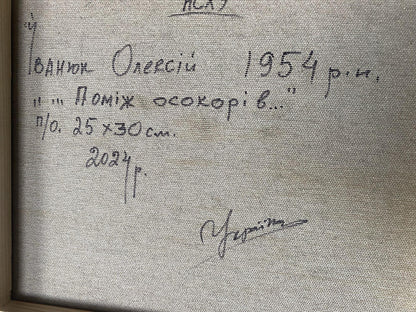 НСХУ
Іванюк Олексій 1954 р.н.
„... Поміж осокорів..."
п/о. 25×30 см.
2024 р.
Україна